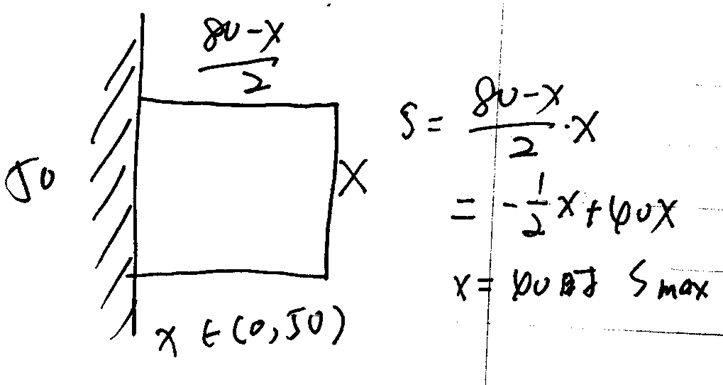 80-x
2
50
x
x ∈ (0,50)
S = (80-x)/2 · x
= -1/2 x + 40x
x = 40时 Smax